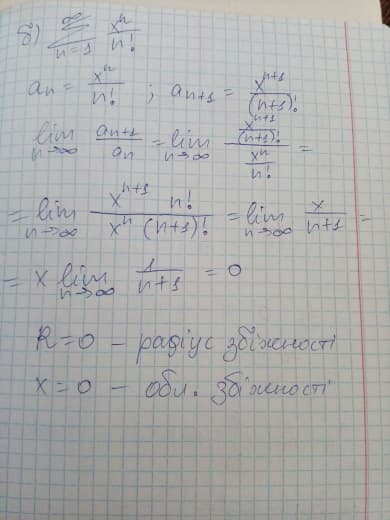 б) ∞ ∑ n=1 xⁿ/n!
aₙ = xⁿ/n! ; aₙ₊₁ = xⁿ⁺¹/(n+1)!
lim n→∞ aₙ₊₁/aₙ = lim n→∞ (xⁿ⁺¹/(n+1)!)/(xⁿ/n!) =
= lim n→∞ xⁿ⁺¹ n!/xⁿ (n+1)! = lim n→∞ x/n+1 =
= x lim n→∞ 1/n+1 = 0
R=0 – радіус збіжності
x=0 – обл. збіжності